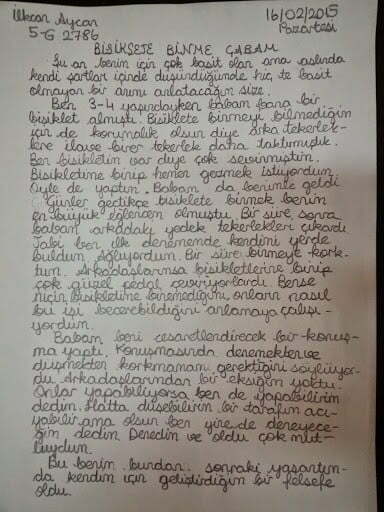 İlkcan Aycan
16/02/2015
5-G 2786
Pazartesi
BİSİKLETE BİNME ÇABAM
Şu an benim için çok basit olan ama aslında
kendi şartlar içinde düşündüğünde hiç te basit
olmayan bir anımı anlatacağım size.
Ben 3-4 yaşındayken babam bana bir
bisiklet almıştı. Bisiklete binmeyi bilmediğim
için de korumalık olsun diye arka tekerlek-
lere ilave birer tekerlek daha taktırmıştık.
Ben bisikletim var diye çok sevinmiştim.
Bisikletime binip hemen gezmek istiyordum
öyle de yaptım. Babam da benimle geldi
Günler geçtikçe bisiklete binmek benim
en büyük eğlencem olmuştu. Bir süre sonra
babam arkadaki yedek tekerlekleri çıkardı
Tabi ben ilk denememde kendimi yerde
buldum. Ağlıyordum. Bir süre binmeye kork-
tum. Arkadaşlarımsa bisikletlerine binip
çok güzel pedal çeviriyorlardı. Bense
niçin bisikletime binemediğimi, onların nasıl
bu işi becerebildiğini anlamaya çalışı-
yordum.
Babam beni cesaretlendirecek bir konuş-
ma yaptı. Konuşmasında denemekten ve
düşmekten korkmamam gerektiğini söylüyor-
du. Arkadaşlarımdan bir eksiğim yoktu.
Onlar yapabiliyorsa ben de yapabilirim
dedim. Hatta düşebilirim bir tarafım acı-
yabilir ama olsun ben yine de deneyece-
ğim dedim. Denedim ve oldu çok mut-
luydum.
Bu benim bundan sonraki yaşantım-
da kendim için geliştirdiğim bir felsefe
oldu.